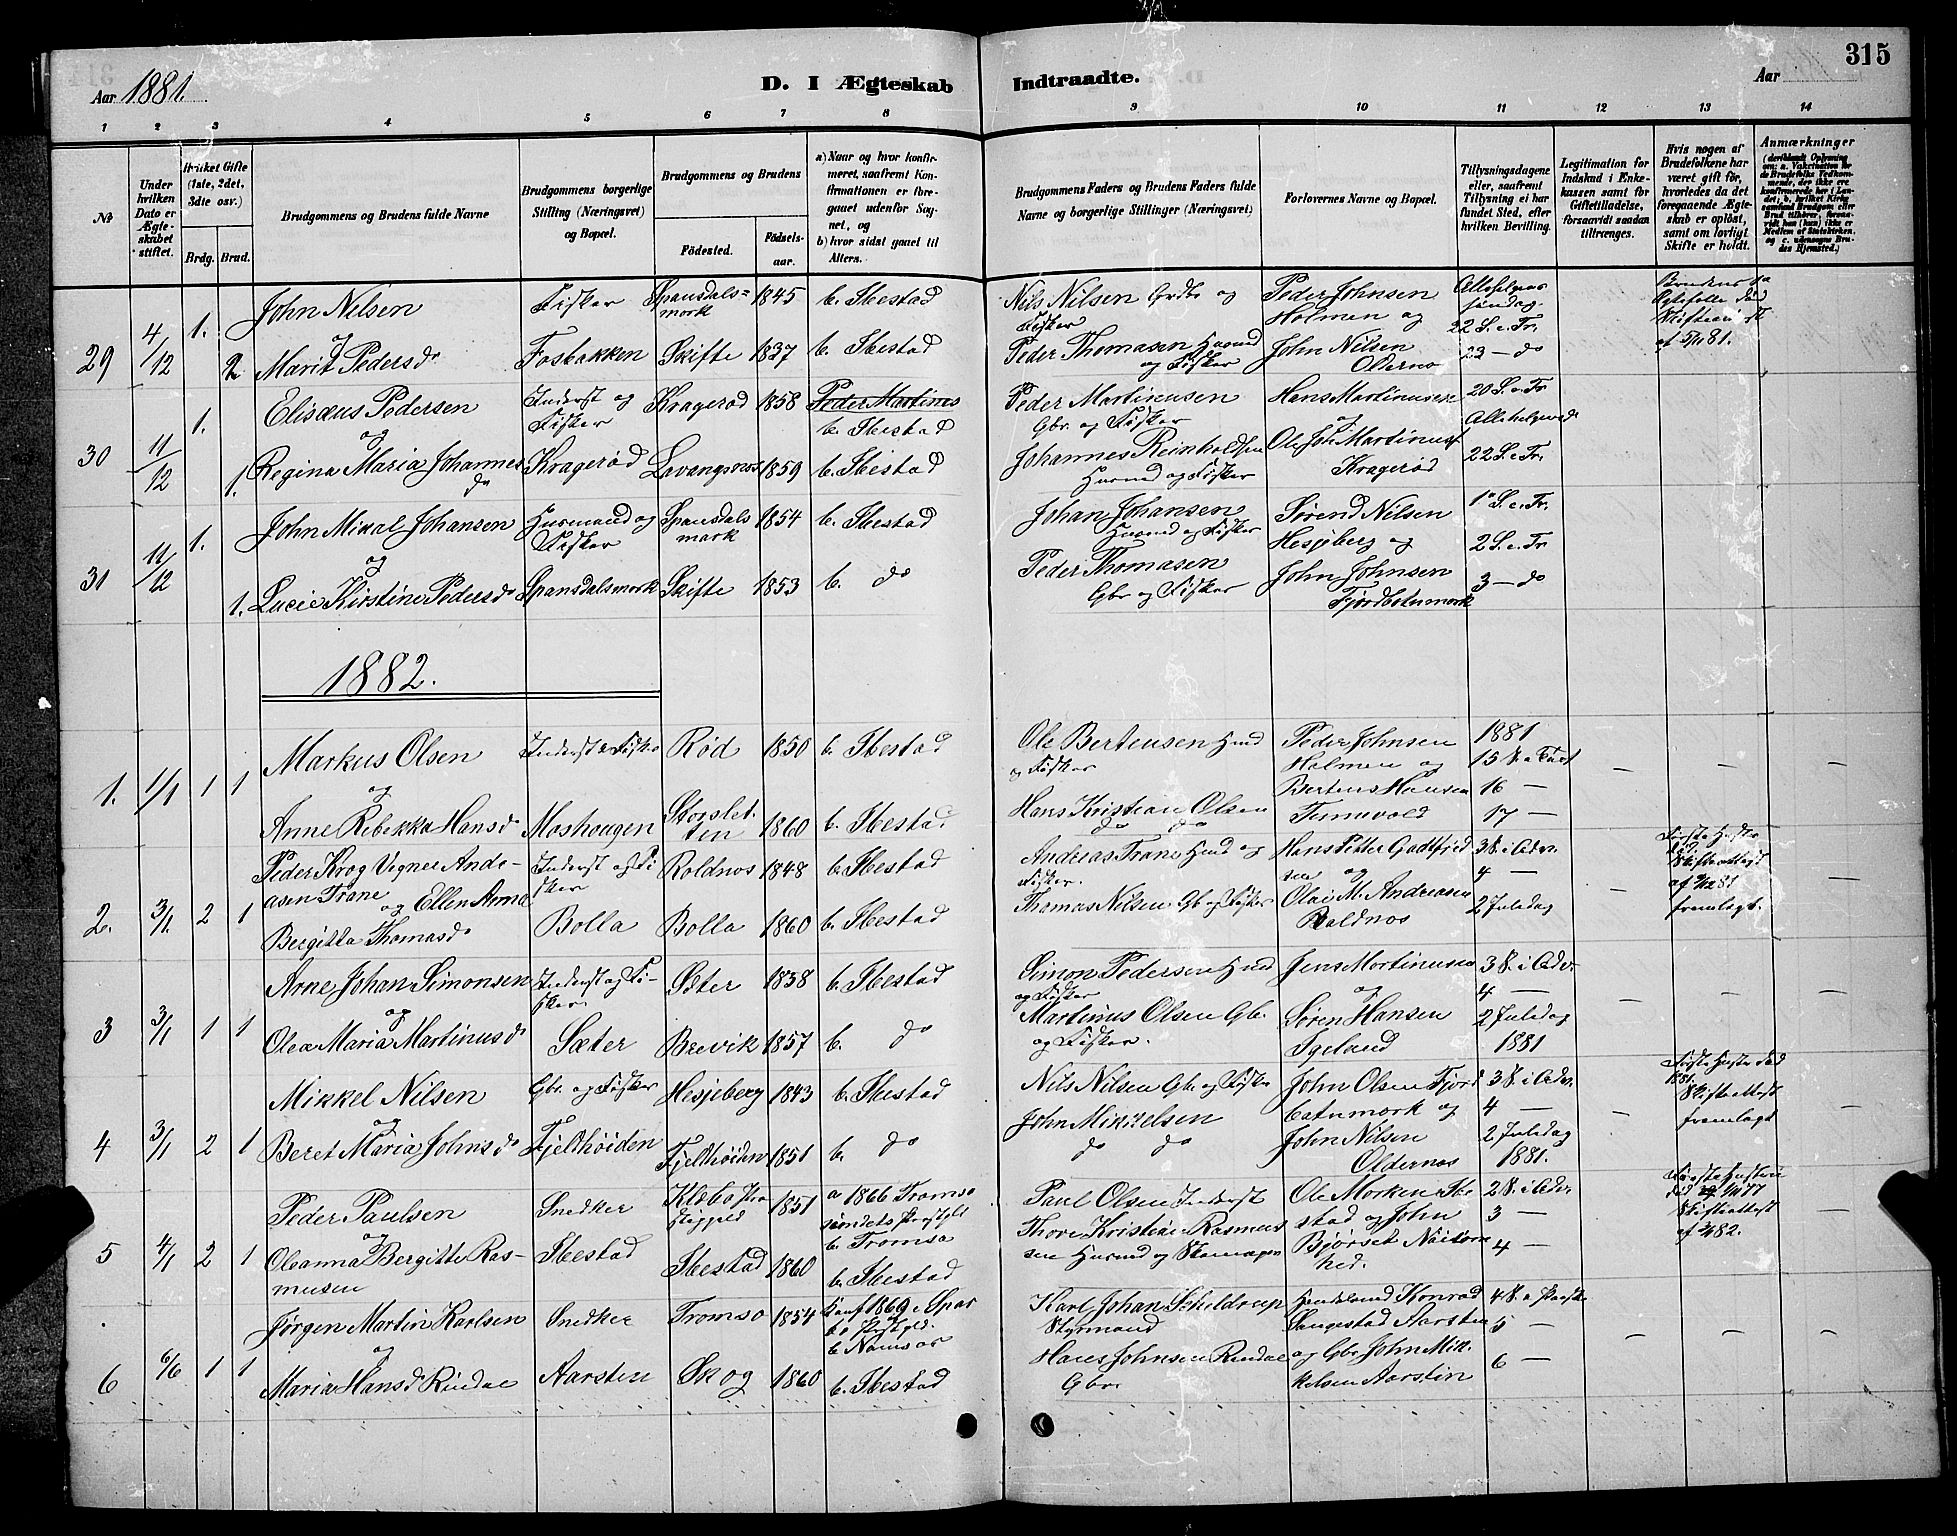 315
Aar 1881. D. I Ægteskab Indtraadte. Aar
1 2 3 4 5 6 7 8 9 10 11 12 13 14
№
Under hvilken Dato er Ægteskabet stiftet.
Hvilket Gifte (1ste, 2det, 3dte osv.)
Brdg. Brud.
Brudgommens og Brudens fulde Navne
Brudgommens borgerlige Stilling (Næringsvei) og Bopæl.
Brudgommens og Brudens
Fødested.
Fødselsaar.
a) Naar og hvor konfirmeret, saafremt Konfirmationen er foregaaet udenfor Sognet, og
b) hvor sidst gaaet til Alters.
Brudgommens Faders og Brudens Faders fulde Navne og borgerlige Stillinger (Næringsvei)
Forlovernes Navne og Bopæl.
Tillysningsdagene eller, saafremt Tillysning ei har fundet Sted, efter hvilken Bevilling.
Legitimation for Indskud i Enkekassen samt for Giftetilladelse, forsaavidt saadan tiltrænges.
Hvis nogen af Brudefolkene har været gift før, hvorledes da det foregaaende Ægteskab er opløst, samt om lovligt Skifte er holdt.
Anmærkninger
29 4/12 1. John Nilsen Fisker Spansdalsmork 1845 b. Ibestad Nils Nilsen Grdbr og Fisker Peder Johnsen Holmen og 22 S. e. Tr.
og
2 Marit Pedersd Fosbakken Skifte 1837 b. Ibestad Peder Thomasen Husmd og Fisker John Nilsen Oldernes 23 — do
af 5/11 81.
30 11/12 1. Elisæus Pedersen Inderst og Fisker Kragerød 1858 Peder Martines b. Ibestad Peder Martinusen Gbr. og Fisker Hans Martinusen og 20 S. e. Tr.
og
1. Regina Maria Johannesd Kragerød Lavangsnes 1859 b. Ibestad Johannes Reinholdsen Husmd og Fisker Ole Joh Martinus Kragerød 22 S. e. Tr.
31 11/12 1. John Mikal Johansen Husmand og Fisker Spansdalsmark 1854 b. Ibestad Johan Johansen Husmd og Fisker Sørend Nilsen Hesjeberg og 1 S. e. Tr. 2 S. e. Tr
og
1. Lucie Kirstine Pedersd Spansdalsmork Skifte 1853 b. do Peder Thomasen Gbr og Fisker John Johnsen Fjordbotnmork 3 — do
1882.
1. 1/1 1 1 Markus Olsen Inderst & Fisker Rød 1850 b. Ibestad Ole Bertensen Hmd og Fisker Peder Johnsen Holmen og 1881
og
Anne Rebekka Hansd Moshaugen Storsletten 1860 b. Ibestad Hans Kristian Olsen do do Bertens Hansen Tunnvold 16 — 17 —
2. 3/1 2 1 Peder Krog Vigner Andreasen Trane Inderst og Fisker Roldnes 1848 b. Ibestad Andreas Trane Hmd og Fisker. Hans Petter Godtfredsen og 3 S. i Adv. 4 —
og Ellen Anna Bergitta Thomasd Bolla Bolla 1860 b. Ibestad Thomas Nilsen Gb og Fisker Olai M. Andreasen Roldnes 2 Juledag
Skifteattest fremlagt.
3 3/1 1 1 Arne Johan Simonsen Inderst og Fisker. Sæter 1838 b. Ibestad Simon Pedersen Hmd og Fisker Jens Martinusen og 3 S. i Adv. 4 —
og
Olea Maria Martinusd Sæter Brevik 1857 b. do Martinus Olsen Gb. og Fisker. Søren Hansen 2 Juledag 1881
4 3/1 2 1 Mikkel Nilsen Gbr. og Fisker Hesjeberg 1843 b. Ibestad Nils Nilsen Gb og Fisker John Olsen Fjordbotnmork og 3 S. i Adv. 4 —
og
Beret Maria Johnsd Fjeldhøiden Fjeldhøiden 1851 b. do John Mikkelsen do do John Nilsen Oldernes 2 Juledag 1881.
Skifteattest fremlagt
5 4/1 2 1 Peder Paulsen Snedker 1851 a 1866 Tromsø b. Tromsø Paul Olsen Inderst Ole Morken Ibestad og John 2 S. i Adv. 3 —
og
Oleanna Bergitte Rasmusen Ibestad Ibestad 1860 b. Ibestad Thore Kristian Rasmussen Husmd og Skomager 4 —
Skifteattest
6 6/6 1 1 Jørgen Martin Karlsen Snedker Tromsø 1854 Konf 1869 b. Namsos Karl Johan Schildrup Styrmand Handelsmd Konrad 4 S. e. Paaske 5 —
og
Maria Hansd Rindal Aarsten Skog 1860 b. Ibestad Hans Johnsen Rindal Gbr. og Gbr. John Mikkelsen Aarstin 6 —